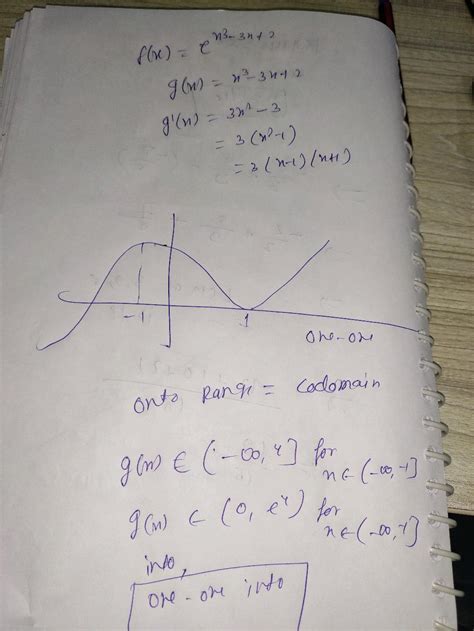 f(x) = e^{x³-3x+2}
g(x) = x³-3x+2
g'(x) = 3x²-3
= 3(x²-1)
= 3(x-1)(x+1)
-1
1
one-one
onto Range = codomain
g(x) ∈ (-∞, 4] for
x ∈ (-∞, -1]
g(x) ∈ (0, e⁴) for
x ∈ (-∞, 4)
into,
one-one into